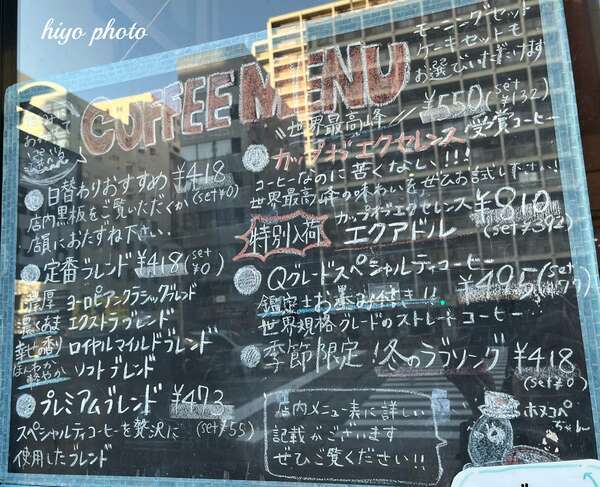 hiyo photo
COFFEE MENU
モーニングセット
ケーキセットも
お選びいただけます
日替わりおすすめ ¥418
(set ¥0)
店内黒板をご覧いただくか
店員におたずね下さい。
定番ブレンド ¥418 (set ¥0)
濃厚 ヨーロピアンクラシックブレンド
濃くあま エクストラブレンド
幸せの香り ロイヤルマイルドブレンド
ほんわか
軽やか ソフトブレンド
プレミアムブレンド ¥473
(set ¥55)
スペシャルティコーヒーを贅沢に
使用したブレンド
世界最高峰 ¥550 (set ¥132)
カップオブエクセレンス 受賞コーヒー
コーヒーなのに苦くない!!!
世界最高峰の味わいをぜひお試し下さい!
特別入荷
カップオブエクセレンス ¥810
エクアドル (set ¥392)
Qグレードスペシャルティコーヒー
¥495 (set ¥77)
鑑定士お墨み付き!!
世界規格グレードのストレートコーヒー
季節限定!冬のラブソング ¥418
(set ¥0)
店内メニュー表に詳しい
記載がございます
ぜひご覧ください!!
ホヌコペ
ちゃん